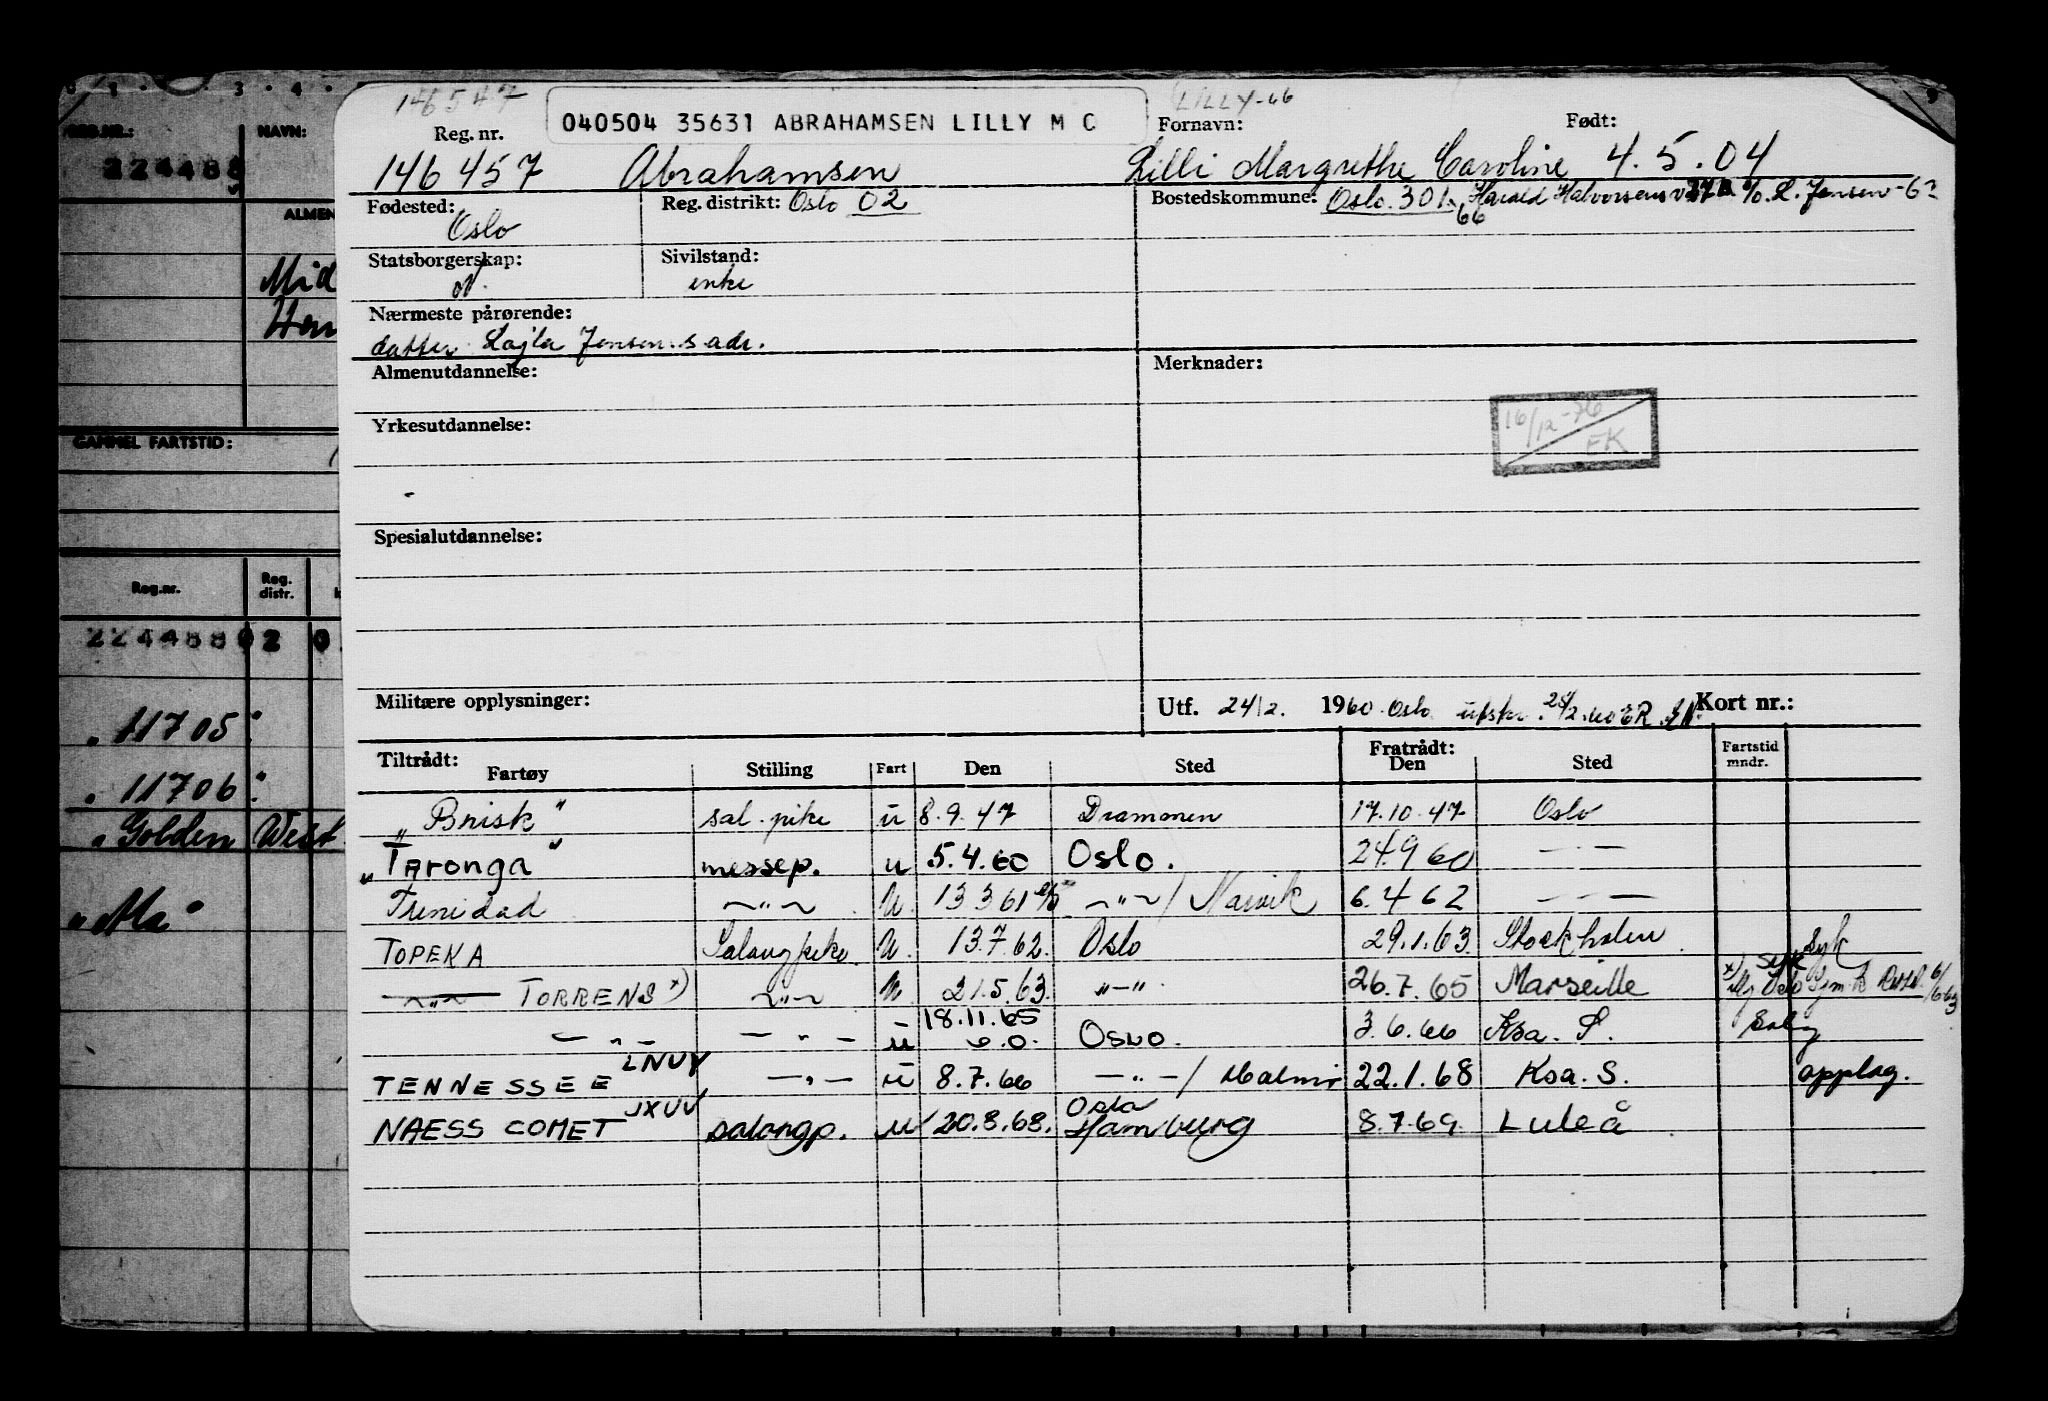 146547
040504 35631 ABRAHAMSEN LILLY M C
LILLY-66
Reg. nr.
Fornavn:
Født:
146 457 Abrahamsen Lilli Margrethe Caroline 4.5.04
Fødested: Oslo
Reg. distrikt: Oslo 02
Bostedskommune: Oslo 301. Harald Halvorsens v. c/o. L. Jensen
66
Statsborgerskap: N.
Sivilstand: enke
Nærmeste pårørende:
datter Lajla Jensen s. adr.
Almenutdannelse:
Merknader:
16/12-76
EK
Yrkesutdannelse:
Spesialutdannelse:
Militære opplysninger:
Utf. 24/2. 1960 Oslo utskr. 25/2.60 ER
Kort nr.:
Tiltrådt: Fartøy Stilling Fart Den Sted Fratrådt: Den Sted Fartstid mndr.
"Brisk" sal. pike u 8.9.47 Drammen 17.10.47 Oslo
"Taronga" messep. u 5.4.60 Oslo. 24.9 60 — " —
Trinidad — " — u. 13 3 61 — " — / Narvik 6.4 62 — " —
TOPEKA Salongpike u. 13.7.62. Oslo 29.1.63. Stockholm. Syk
— " — TORRENS x) — " — u. 21.5.63. — " — 26.7.65 Marseille x) Syk Oslo
— " — — " — u 18.11.65 Oslo. 3.6.66 Ksa. S.
TENNESSEE LNUY — " — u 8.7.66 — " — / Malmø 22.1.68 Ksa. S. opplag.
NAESS COMET JXUV salongp. u 20.8.68. Oslo Hamburg 8.7.69. Luleå
REG.NR.: NAVN:
224488
ALMEN
Mid
GAMMEL FARTSTID:
Reg.nr. Reg. distr.
224488 02 0
" 11705"
" 11706"
" Golden West
"Ma"